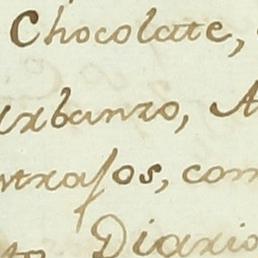 Chocolate,
arbanzo, A
ntrasos, com
to Diario